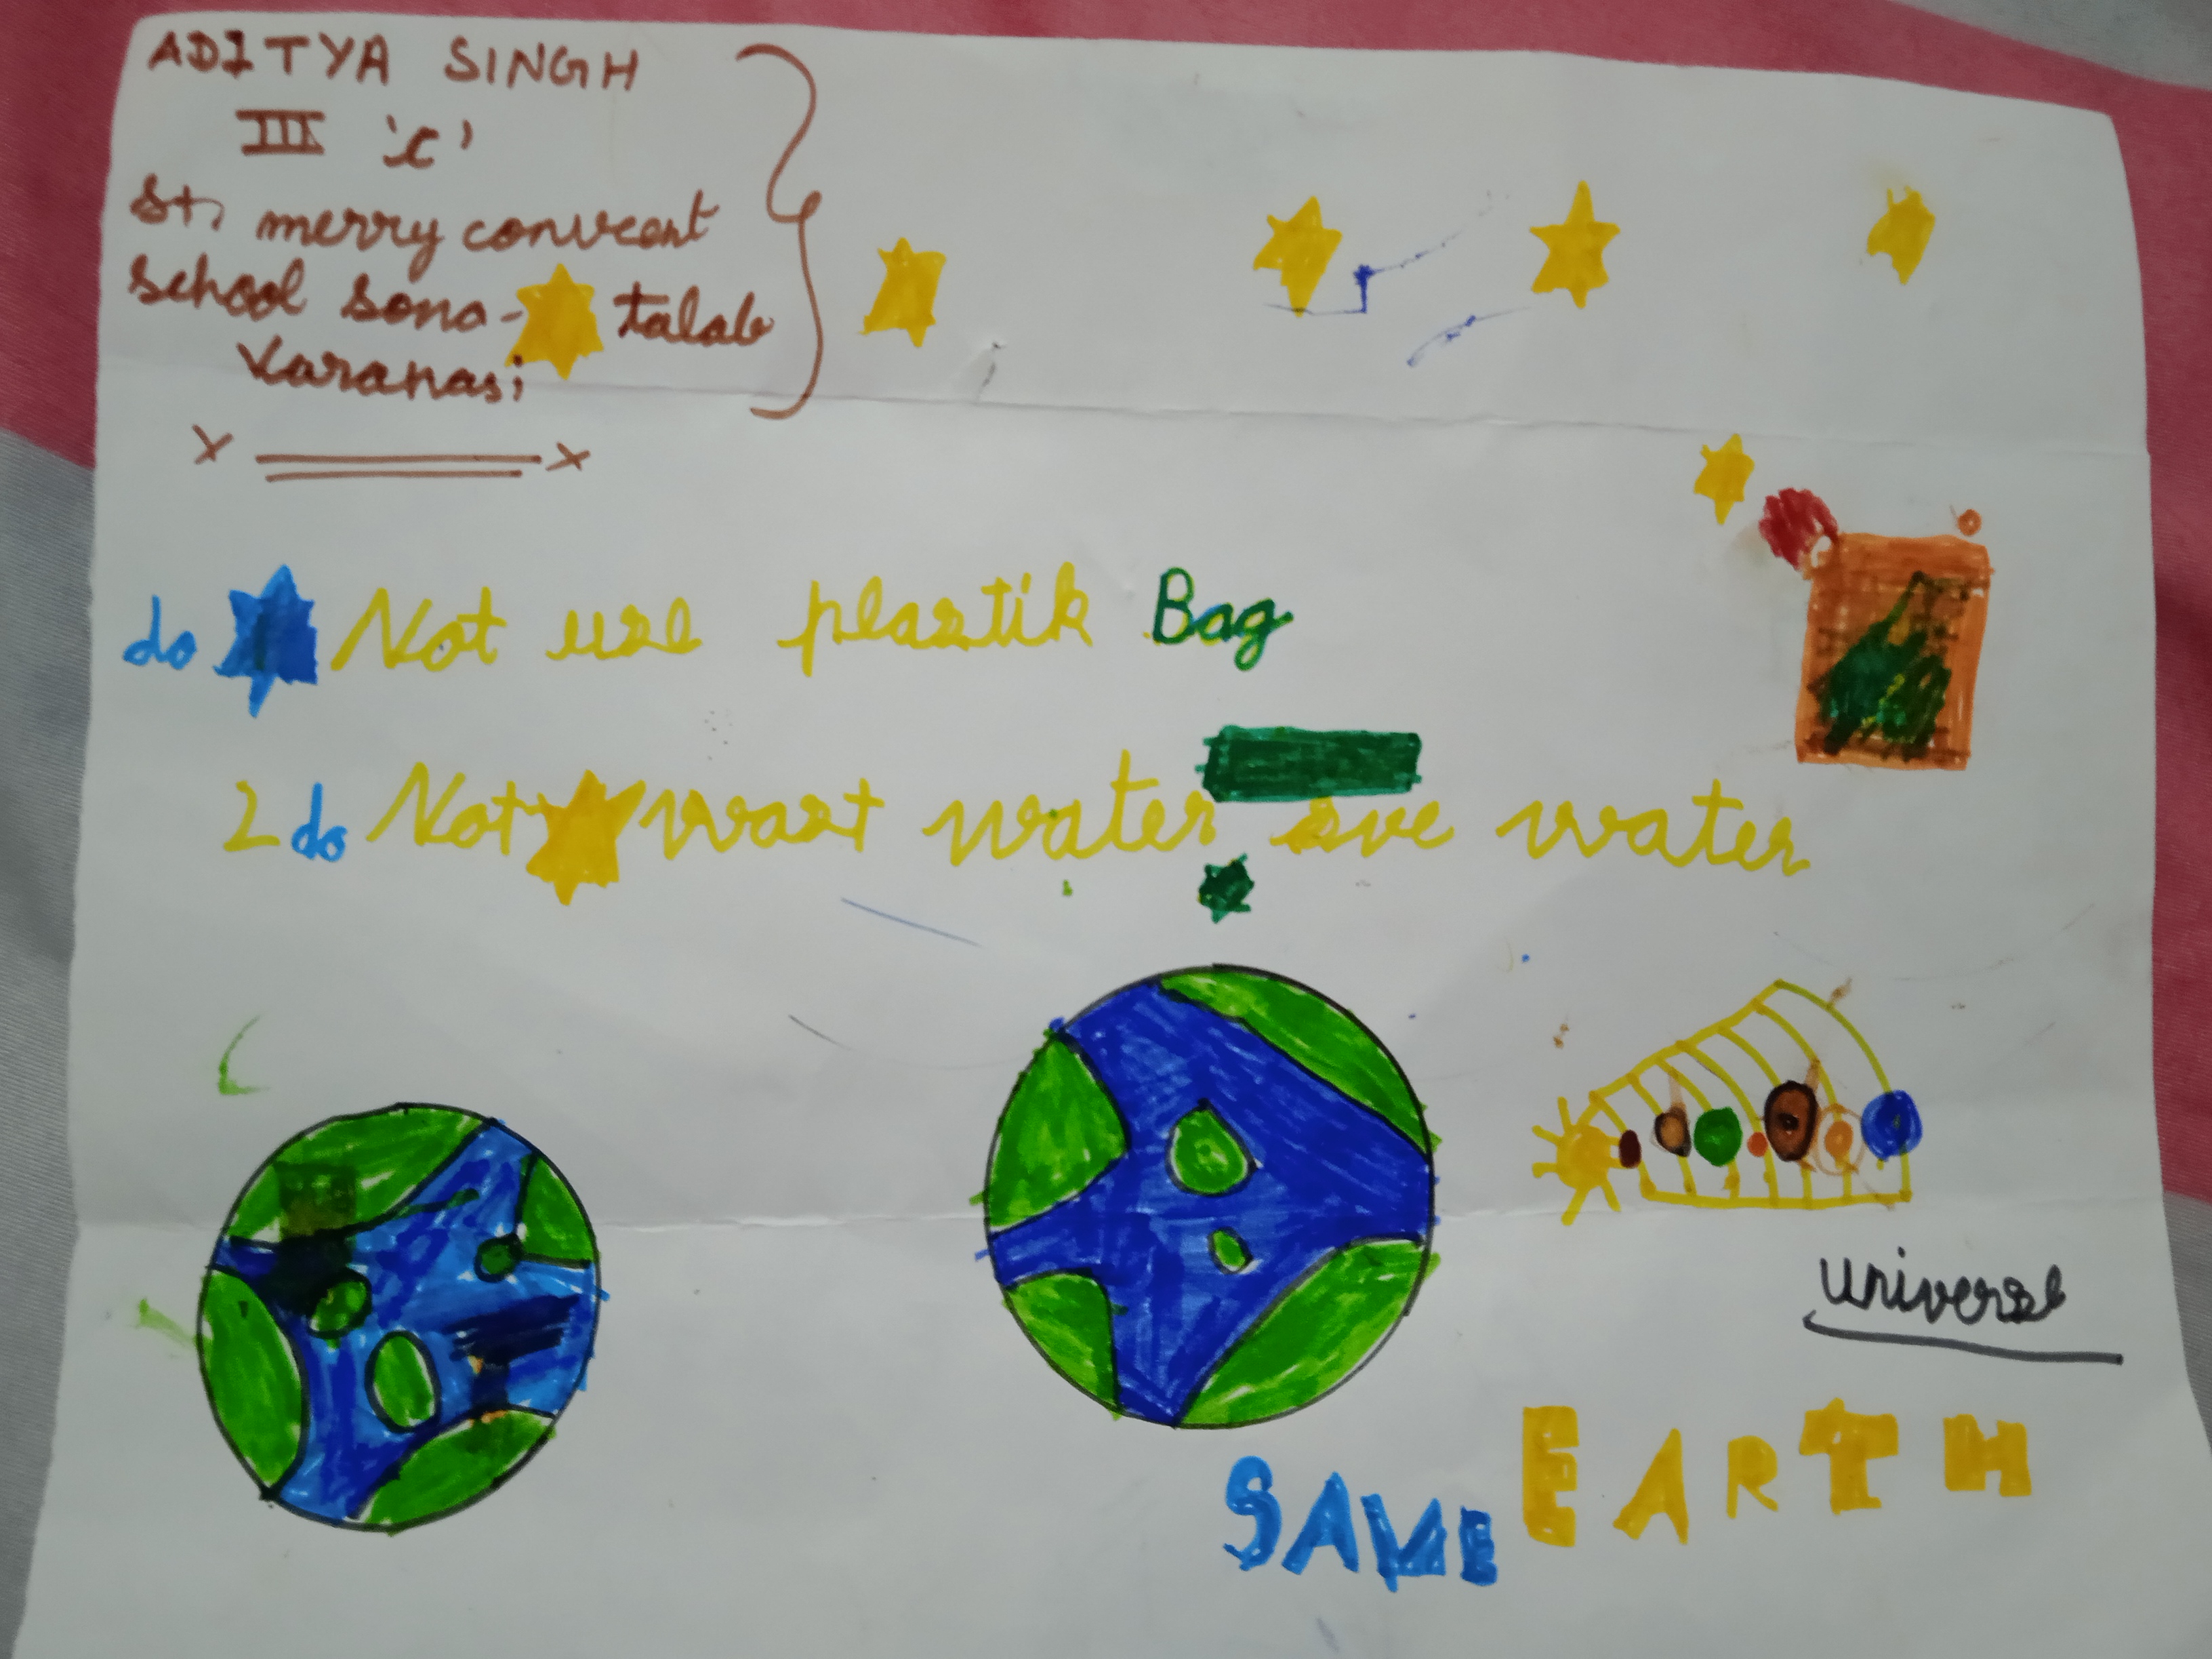 ADITYA SINGH
III 'c'
St, merry conveent
school sona- talab
Varanasi
x x
do Not use plastik Bag
2 do Not wast water sve water
universe
SAVE EARTH